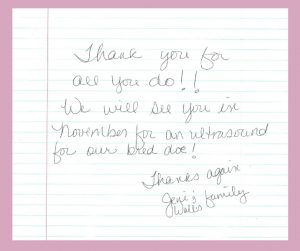 Thank you for
all you do!!
We will see you in
November for an ultrasound
for our bred doe!
Thanks again
family